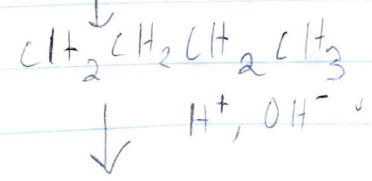 CH₂CH₂CH₂CH₃
H⁺, OH⁻